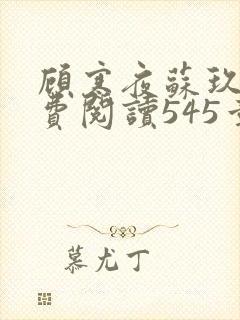 顾寒夜蘇玖
費閱讀545
慕尤丁